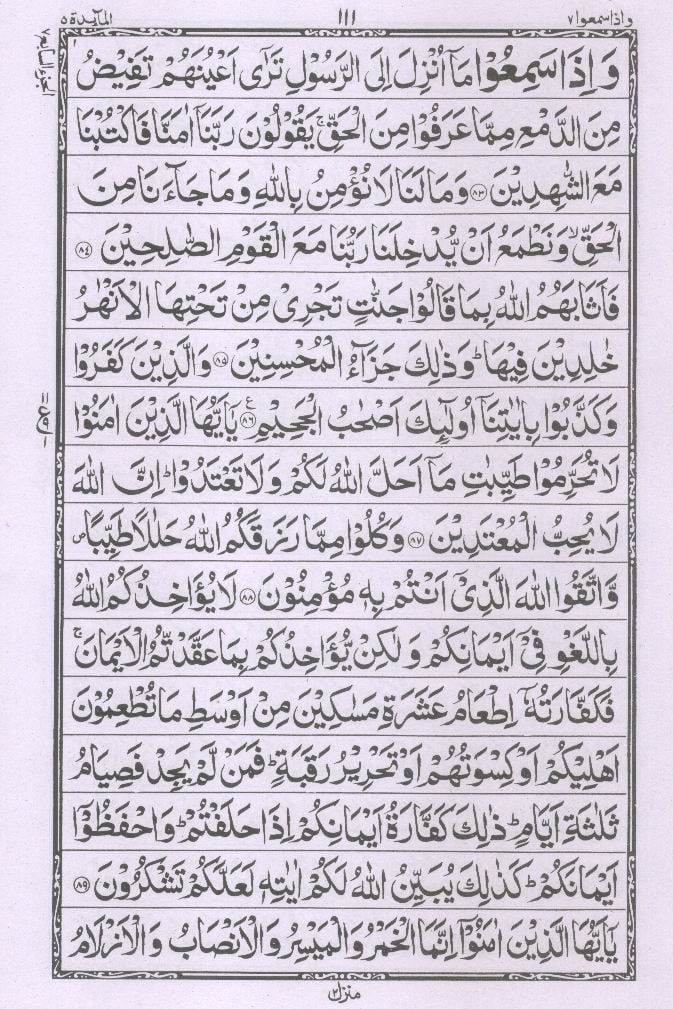 واذا سمعوا ٧ ١١١ المآئدة ٥
وَ اِذَا سَمِعُوْا مَاۤ اُنْزِلَ اِلَى الرَّسُوْلِ تَرٰۤى اَعْیُنَهُمْ تَفِیْضُ
مِنَ الدَّمْعِ مِمَّا عَرَفُوْا مِنَ الْحَقِّ ۚ یَقُوْلُوْنَ رَبَّنَاۤ اٰمَنَّا فَاكْتُبْنَا
مَعَ الشّٰهِدِیْنَ ﴿۸۳﴾ وَ مَا لَنَا لَا نُؤْمِنُ بِاللّٰهِ وَ مَا جَآءَنَا مِنَ
الْحَقِّ ۙ وَ نَطْمَعُ اَنْ یُّدْخِلَنَا رَبُّنَا مَعَ الْقَوْمِ الصّٰلِحِیْنَ ﴿۸٤﴾
فَاَثَابَهُمُ اللّٰهُ بِمَا قَالُوْا جَنّٰتٍ تَجْرِیْ مِنْ تَحْتِهَا الْاَنْهٰرُ
خٰلِدِیْنَ فِیْهَا ؕ وَ ذٰلِكَ جَزَآءُ الْمُحْسِنِیْنَ ﴿۸۵﴾ وَ الَّذِیْنَ كَفَرُوْا
وَ كَذَّبُوْا بِاٰیٰتِنَاۤ اُولٰٓىِٕكَ اَصْحٰبُ الْجَحِیْمِ ﴿۸٦﴾ ع یٰۤاَیُّهَا الَّذِیْنَ اٰمَنُوْا
لَا تُحَرِّمُوْا طَیِّبٰتِ مَاۤ اَحَلَّ اللّٰهُ لَكُمْ وَ لَا تَعْتَدُوْا ؕ اِنَّ اللّٰهَ
لَا یُحِبُّ الْمُعْتَدِیْنَ ﴿۸۷﴾ وَ كُلُوْا مِمَّا رَزَقَكُمُ اللّٰهُ حَلٰلًا طَیِّبًا ۪
وَّ اتَّقُوا اللّٰهَ الَّذِیْۤ اَنْتُمْ بِهٖ مُؤْمِنُوْنَ ﴿۸۸﴾ لَا یُؤَاخِذُكُمُ اللّٰهُ
بِاللَّغْوِ فِیْۤ اَیْمَانِكُمْ وَ لٰكِنْ یُّؤَاخِذُكُمْ بِمَا عَقَّدْتُّمُ الْاَیْمَانَ ۚ
فَكَفَّارَتُهٗۤ اِطْعَامُ عَشَرَةِ مَسٰكِیْنَ مِنْ اَوْسَطِ مَا تُطْعِمُوْنَ
اَهْلِیْكُمْ اَوْ كِسْوَتُهُمْ اَوْ تَحْرِیْرُ رَقَبَةٍ ؕ فَمَنْ لَّمْ یَجِدْ فَصِیَامُ
ثَلٰثَةِ اَیَّامٍ ؕ ذٰلِكَ كَفَّارَةُ اَیْمَانِكُمْ اِذَا حَلَفْتُمْ ؕ وَ احْفَظُوْۤا
اَیْمَانَكُمْ ؕ كَذٰلِكَ یُبَیِّنُ اللّٰهُ لَكُمْ اٰیٰتِهٖ لَعَلَّكُمْ تَشْكُرُوْنَ ﴿۸۹﴾
یٰۤاَیُّهَا الَّذِیْنَ اٰمَنُوْۤا اِنَّمَا الْخَمْرُ وَ الْمَیْسِرُ وَ الْاَنْصَابُ وَ الْاَزْلَامُ
منزل ٢